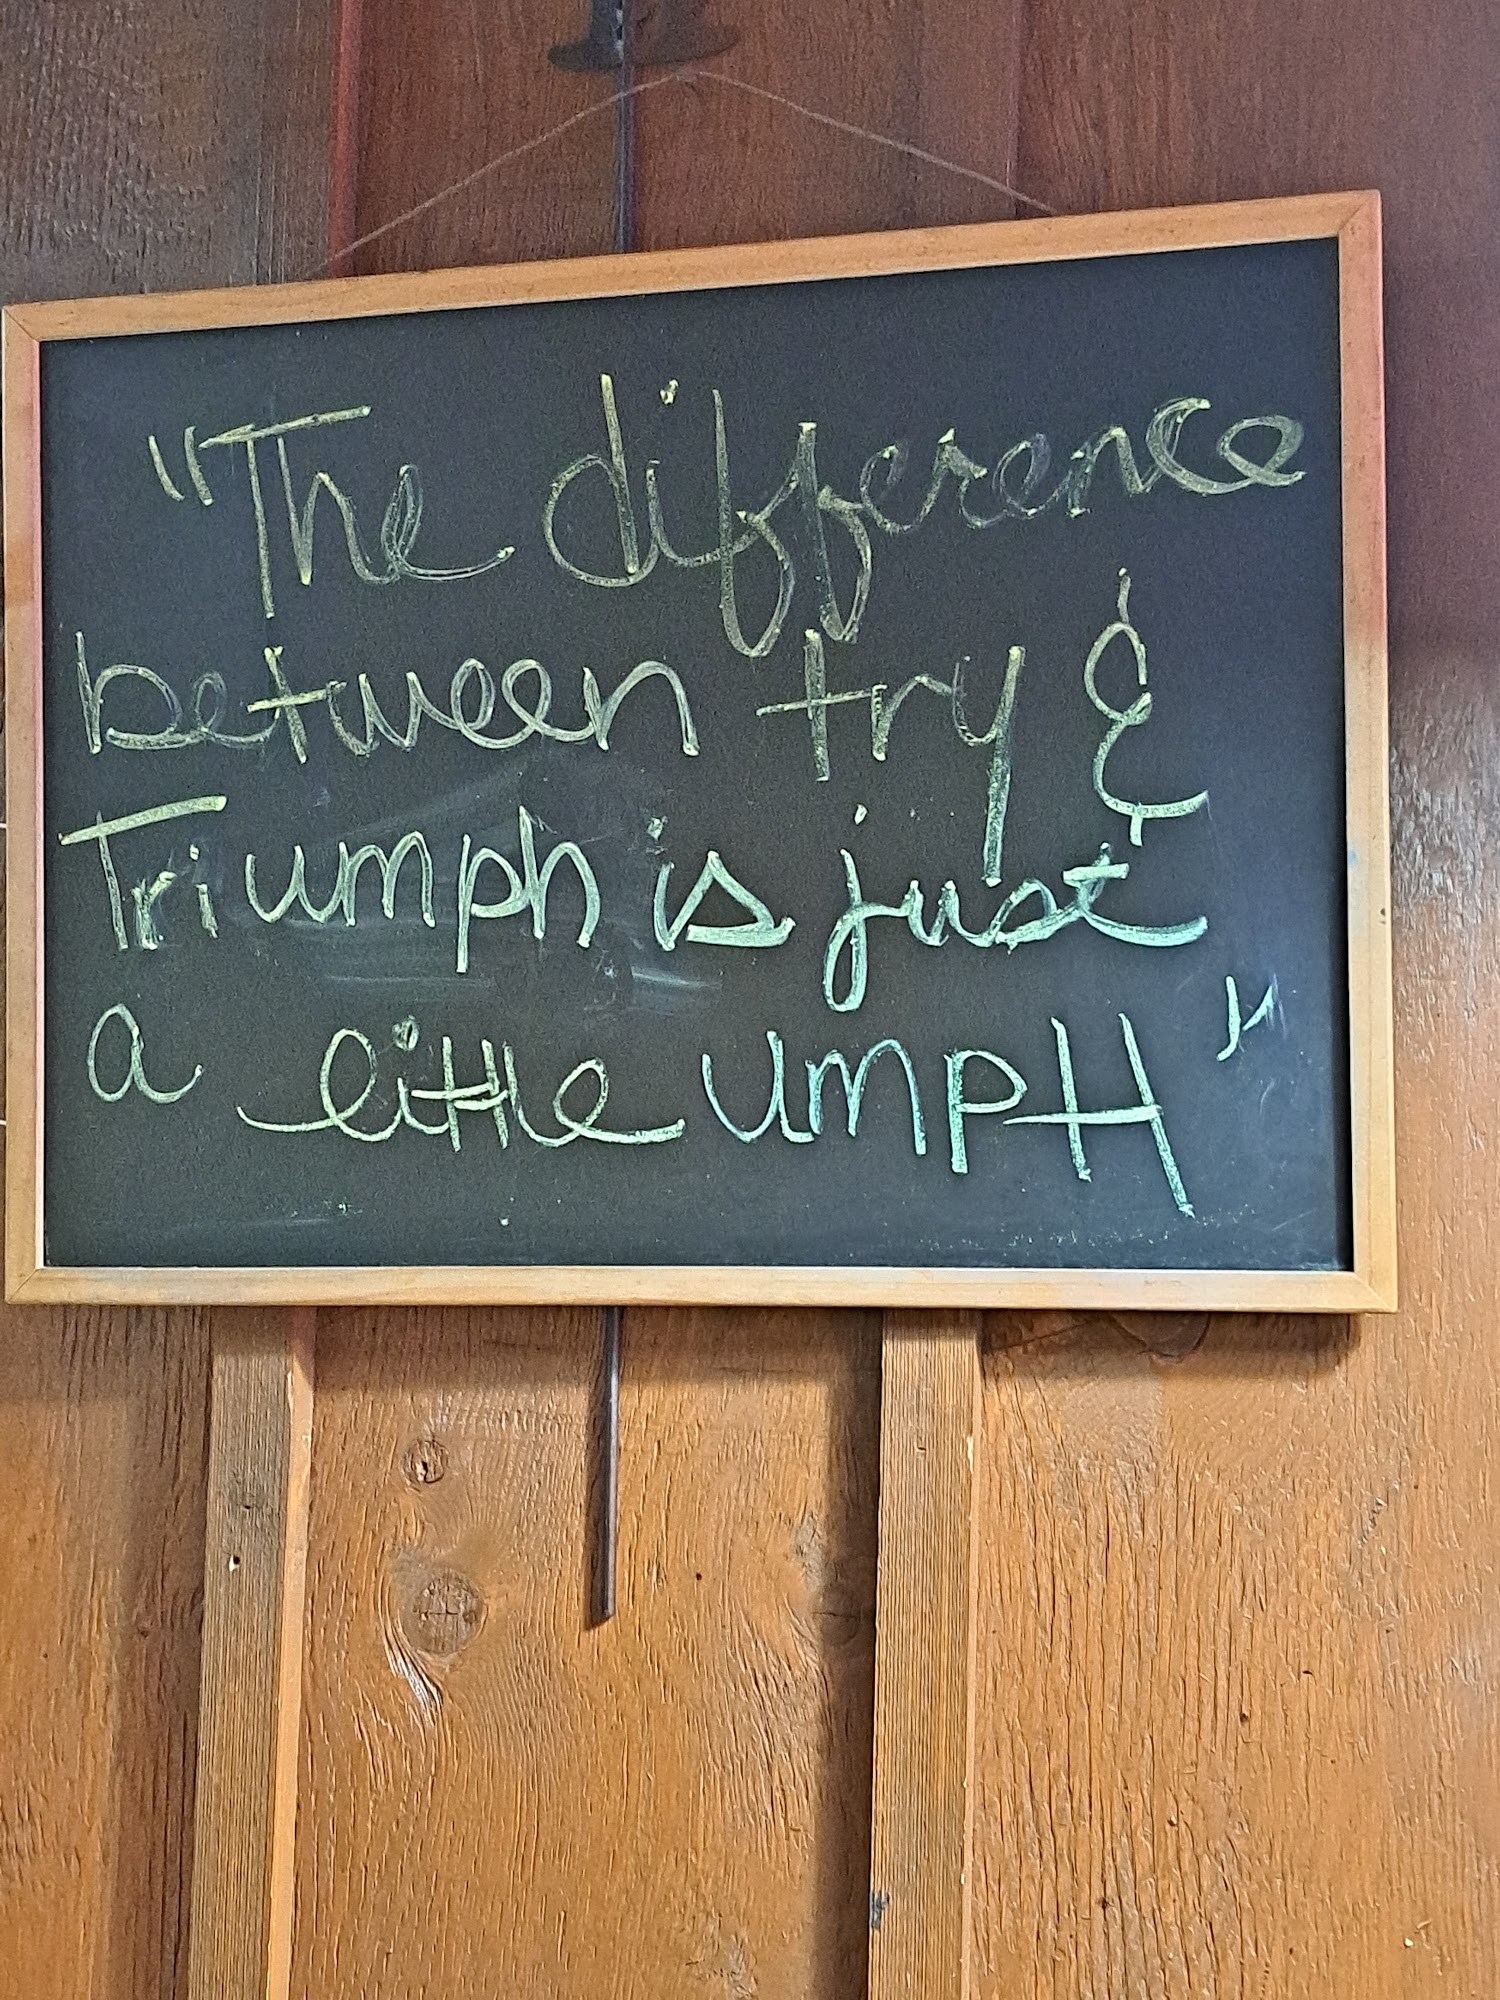 "The difference
between try &
Triumph is just
a little UMPH"